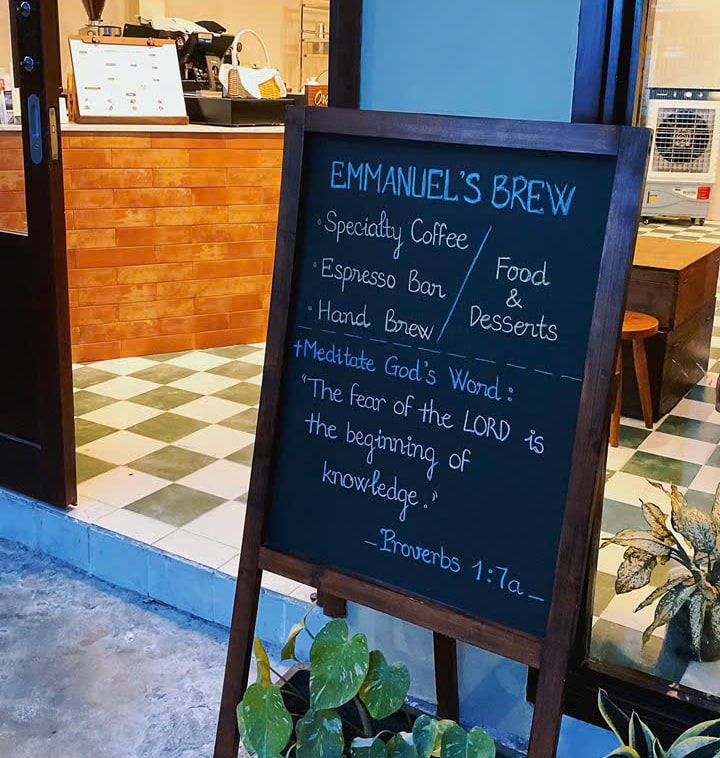 EMMANUEL'S BREW
• Specialty Coffee
• Espresso Bar
• Hand Brew
Food
&
Desserts
+Meditate God's Word:
"The fear of the LORD is
the beginning of
knowledge."
_Proverbs 1:7a_